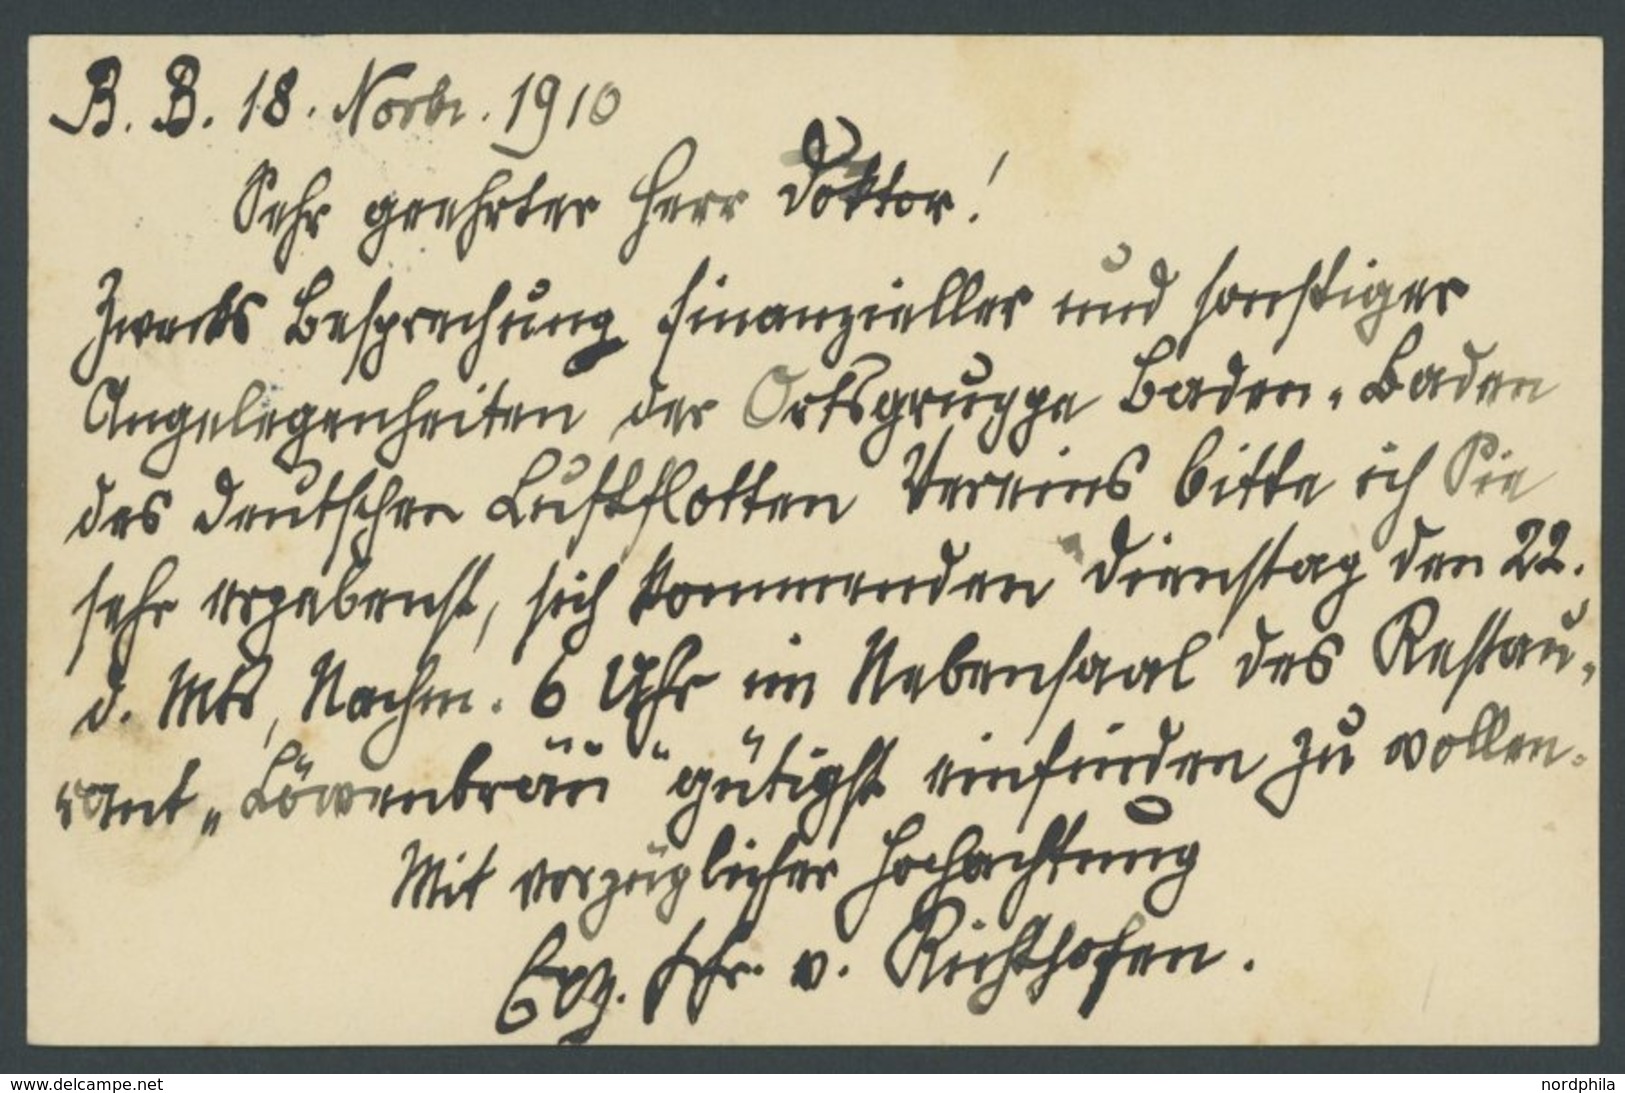 B. B. 18. Novbr. 1910
Sehr geehrter Herr Doktor!
Zwecks Besprechung finanzieller und sonstiger
Angelegenheiten der Ortsgruppe Baden-Baden
des deutschen Luftflotten Vereins bitte ich Sie
sehr ergebenst, sich kommenden Dienstag den 22.
d. Mts, Nachm. 6 Uhr im Nebensaal des Restau-
rant „Löwenbräu" gütigst einfinden zu wollen.
Mit vorzüglicher Hochachtung
Exz. Frhr. v. Richthofen.
www.delcampe.net
nordphila